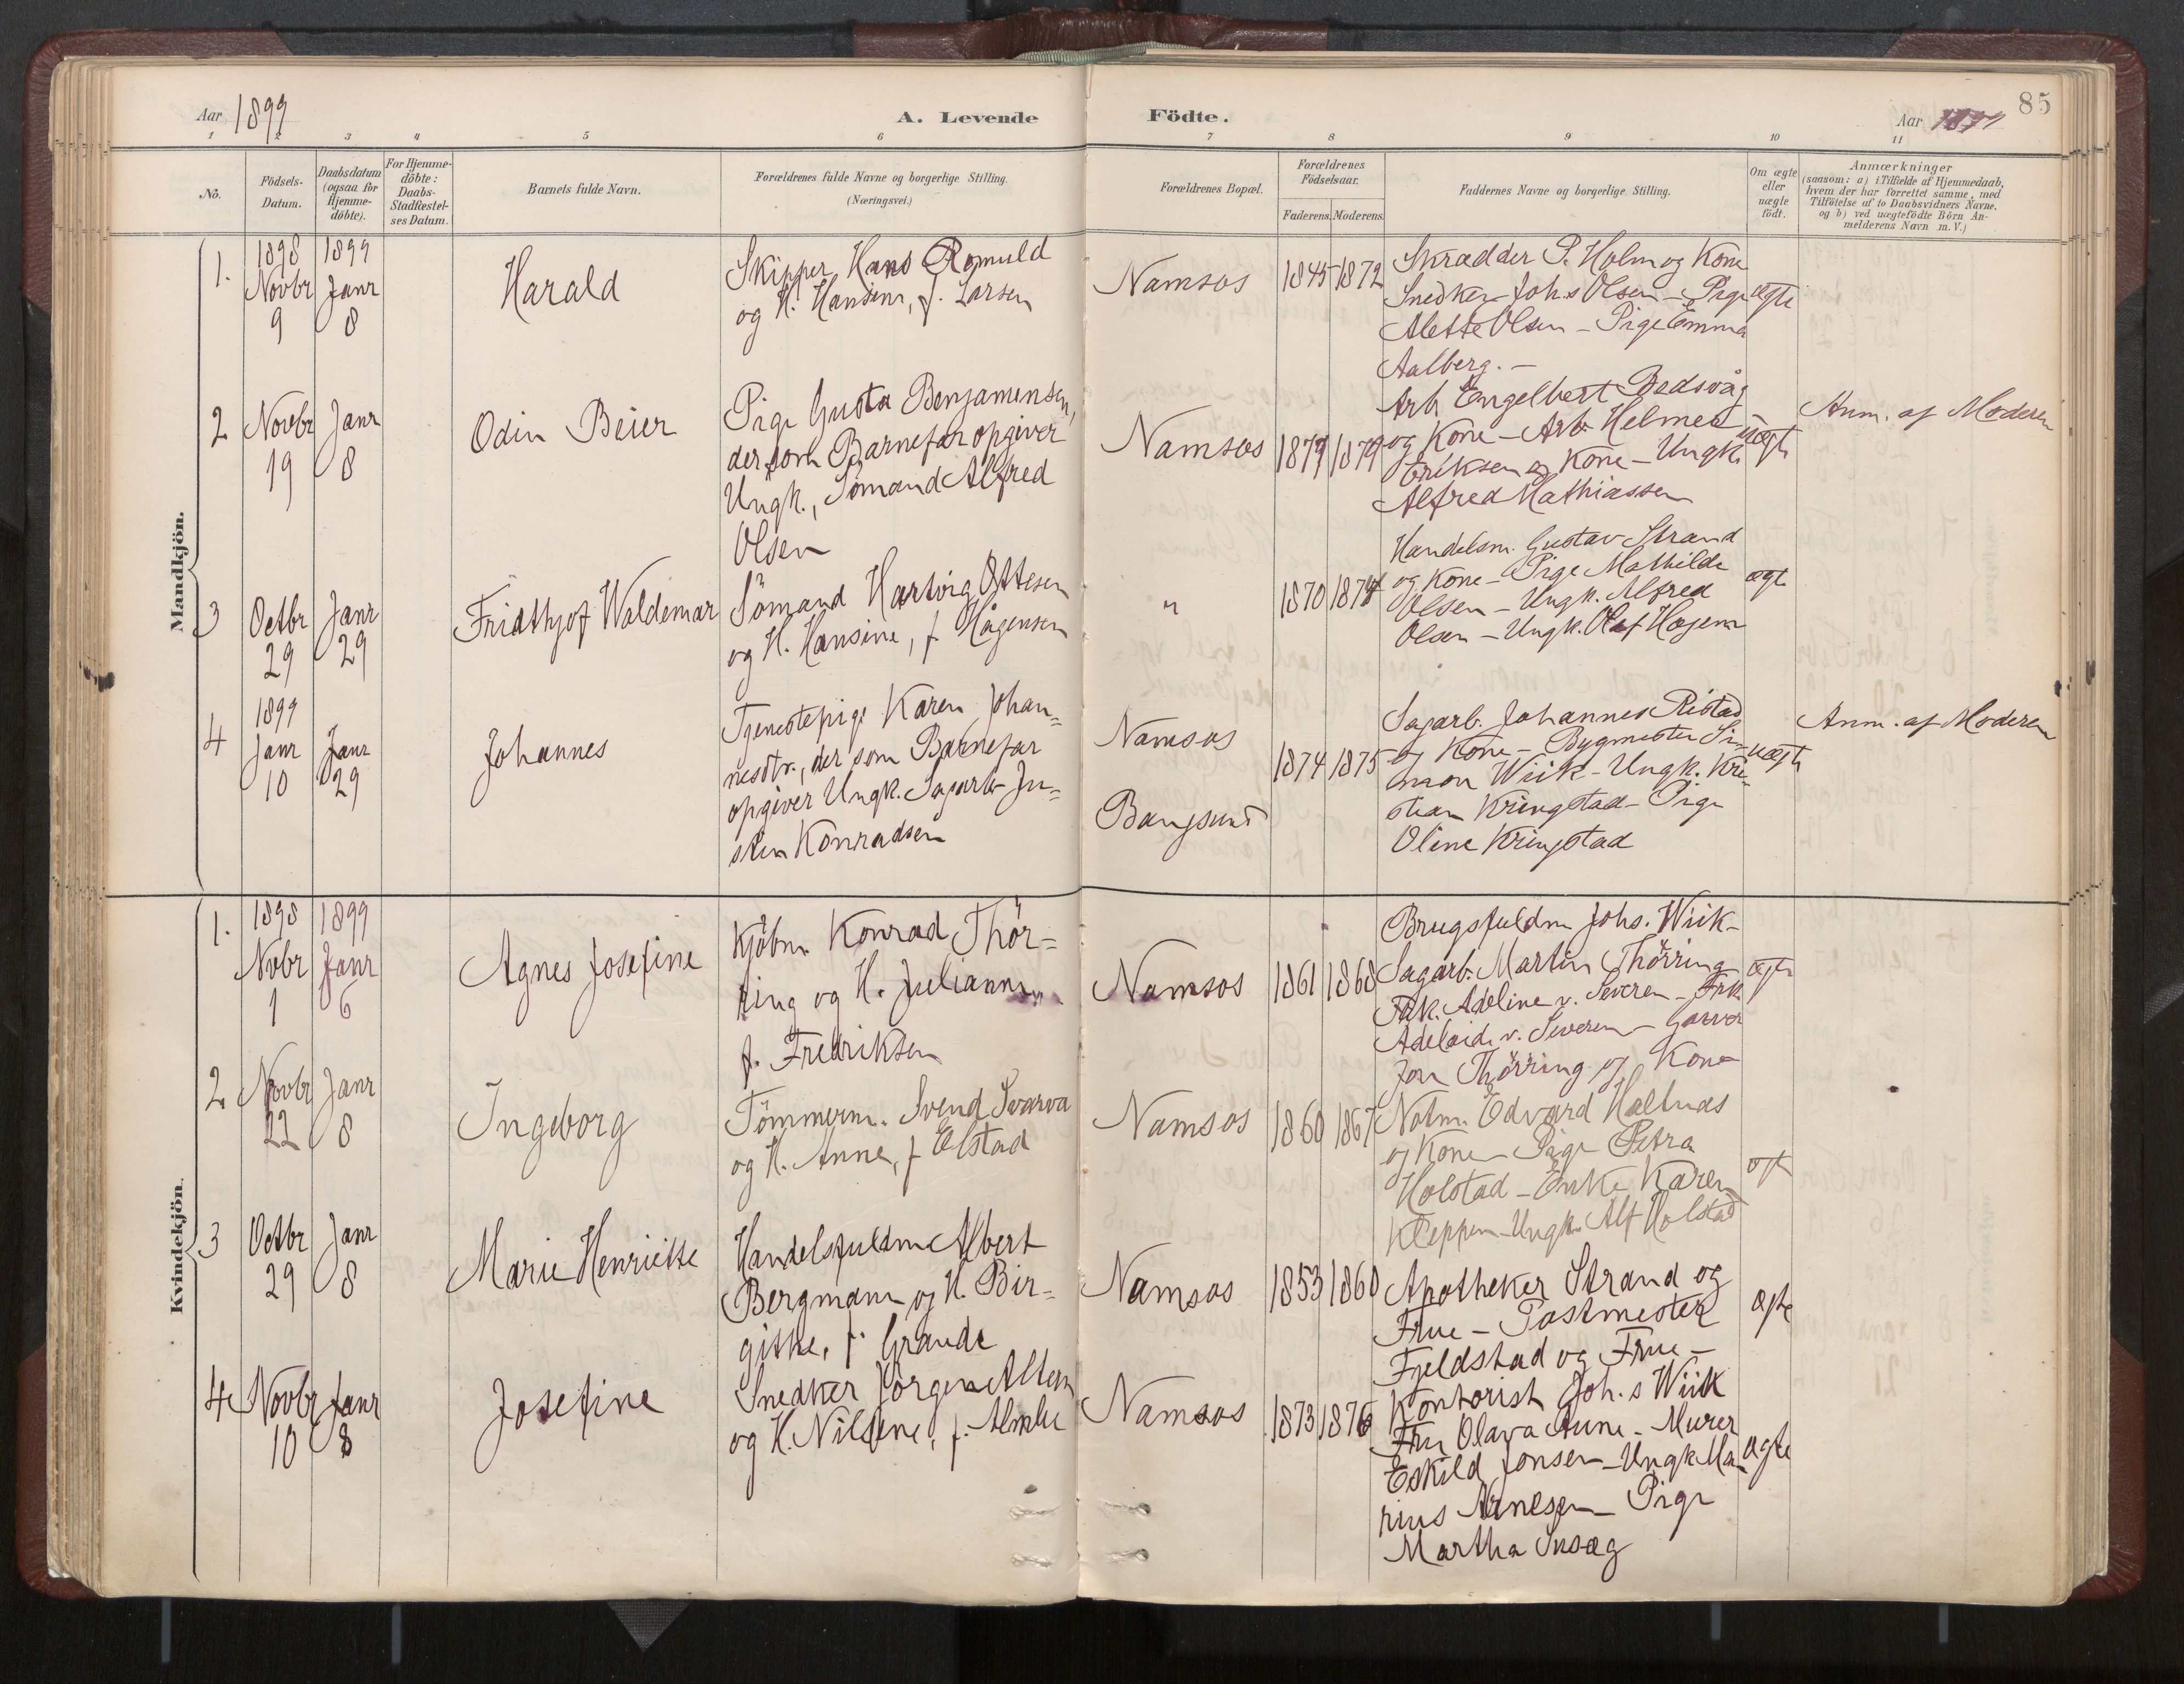 Aar 1899
A. Levende Födte.
Aar 1899
85
1 2 3 4 5 6 7 8 9 10 11
No.
Födsels-Datum.
Daabsdatum (ogsaa for Hjemme-döbte).
For Hjemme-döbte: Daabs-Stadfæstel-ses Datum.
Barnets fulde Navn.
Forældrenes fulde Navne og borgerlige Stilling.
(Næringsvei.)
Forældrenes Bopæl.
Forældrenes Födselsaar.
Faderens. Moderens.
Faddernes Navne og borgerlige Stilling.
Om ægte eller uægte födt.
Anmærkninger
(saasom: a) i Tilfælde af Hjemmedaab,
hvem der har forrettet samme, med
Tilföielse af to Daabsvidners Navne.
og b) ved uægtefödte Börn An-
melderens Navn m. V.)
Mandkjön.
1.
1898 Novbr 9
1899 Janr 8
Harald
Skipper Hans Romuld
og H. Hansine, f. Larsen
Namsos
1845 1872
Skrædder P. Holm og Kone
Snedker Joh.s Olsen - Pige
Alette Olsen - Pige Emma
Aalberg. -
ægte
2
Novbr 19
Janr 8
Odin Beier
Pige Gusta Benjaminsen,
der som Barnefar opgiver
Ungk., Sömand Alfred
Olsen
Namsos
1877 1879
Arb. Engelbert Bedsvåg
og Kone - Arb. Helmer
Eriksen og Kone - Ungk.
Alfred Mathiassen
uægte
Anm. af Moderen
3
Octbr 29
Janr 29
Fridthjof Waldemar
Sömand Hartvig Ottesen
og H. Hansine, f. Hågensen
"
1870 1874
Handelsm. Gustav Strand
og Kone - Pige Mathilde
Olsen - Ungk. Alfred
Olsen - Ungk. Olaf Hagem
ægte
4
1899 Janr 10
Janr 29
Johannes
Tjenestepige Karen Johan=
nesdtr., der som Barnefar
opgiver Ungk. Sagarb. Ju=
sten Konradsen
Namsos
Bangsund
1874 1875
Sagarb. Johannes Ristad
og Kone - Bygmester Si-
mon Wiik - Ungk. Kri-
stian Kringstad - Pige
Oline Kringstad
uægte
Anm. af Moderen
Kvindekjön.
1.
1898 Nvbr 1
1899 Janr 6
Agnes Josefine
Kjöbm. Konrad Thör=
ring og H. Julianna
f. Fredriksen
Namsos
1861 1868
Brugsfuldm Johs. Wiik -
Sagarb. Martin Thörring
Frk. Adeline v. Severen - Frk.
Adelaide v. Severen - Garver
Jon Thörring og Kone
ægte
2
Novbr 22
Janr 8
Ingeborg
Tömmerm. Svend Svarva
og H. Anne, f Elstad
Namsos
1860 1867
Notm. Edvard Hallnæs
og Kone - Pige Petra
Holstad - Enke Karen
Kleppen - Ungk. Alf Holstad
ægte
3
Octbr 29
Janr 8
Marie Henriette
Handelsfuldm Albert
Bergmann og H. Bir=
githe, f. Grande
Namsos
1853 1860
Apotheker Strand og
Frue - Postmester
Fjeldstad og Frue -
ægte
4
Novbr 10
Janr 8
Josefine
Snedker Jörgen Altern
og H. Nilsine, f. Almlie
Namsos
1873 1876
Kontorist Joh.s Wiik
Fru Olava Aune - Murer
Eskild Jonsen - Ungk. Ma-
rius Arnesen - Pige
Martha Snsæg
ægte